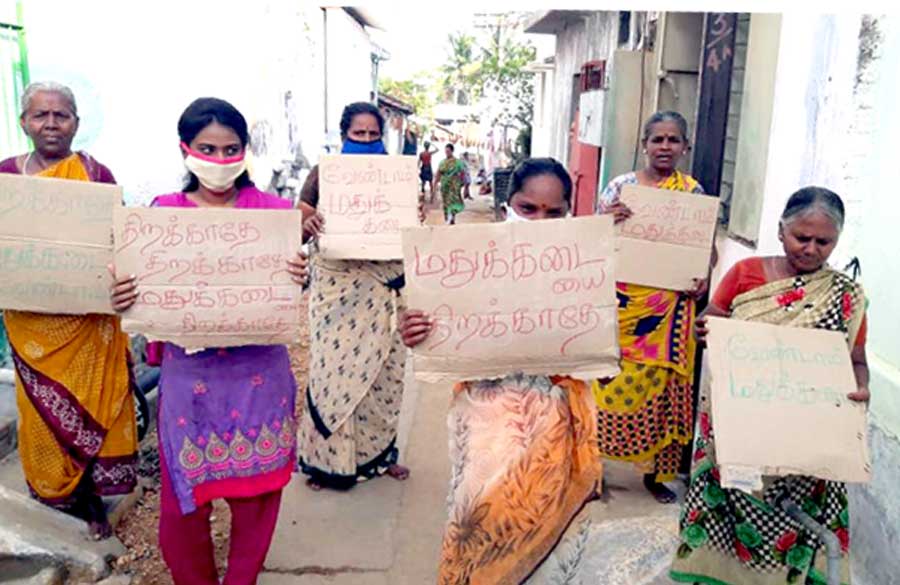 திறக்காதே
மதுக்கடை
வேண்டாம்
திறக்காதே
திறக்காதே
மதுக்கடை
திறக்காதே
வேண்டாம்
மதுக்
கடை
மதுக்கடை
யை
திறக்காதே
வேண்டாம்
மதுக்கடை
வேண்டாம்
மதுக்கடை
3/